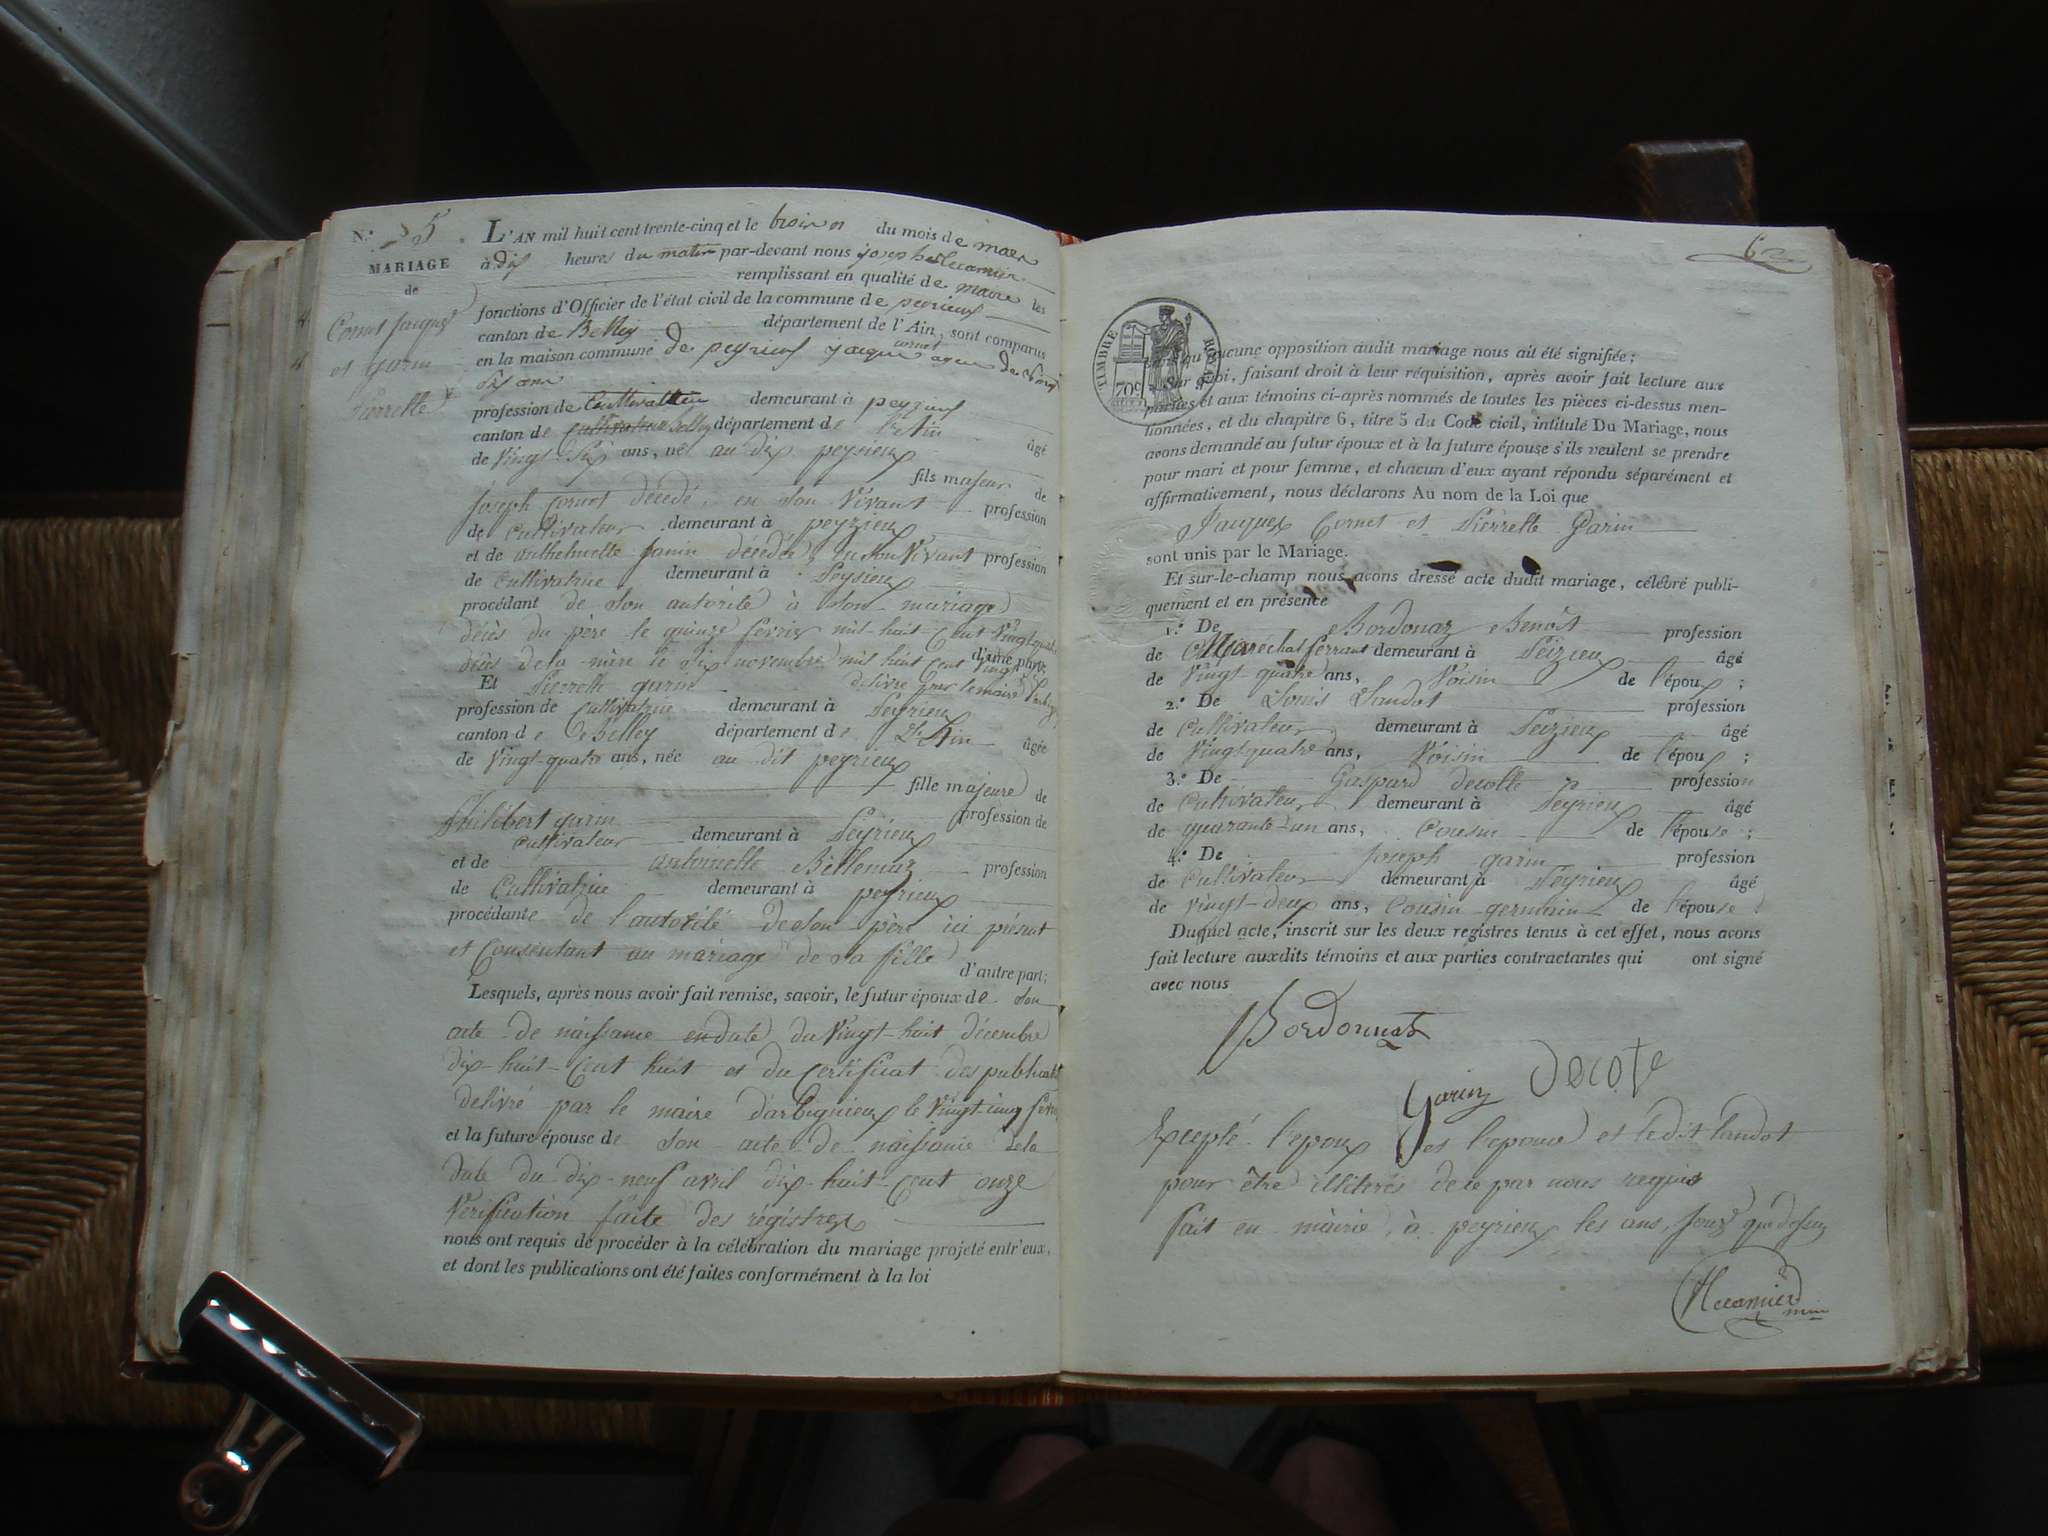 N.° 5
MARIAGE
de
Cornet Jacques
et garin
Pierrette
L'AN mil huit cent trente-cinq et le trois du mois de mars
à dix heures du matin par-devant nous joseph
remplissant en qualité de maire les
fonctions d'Officier de l'état civil de la commune de peyrieux
canton de Belley département de l'Ain, sont comparus
en la maison commune de peyrieux jacques cornet age de vingt
six ans
profession de Cultivateur demeurant à peyrieux
canton de cultivateur belley département de l'ain âgé
de vingt-six ans, né au dit peyrieux
fils majeur de
Joseph Cornet décédé, en son vivant profession
de Cultivateur demeurant à peyrieux
et de anthelmette Janin décédée, en son vivant profession
de Cultivatrice demeurant à Peyrieux
procédant de son autorité à son mariage
décès du père le quinze fevrier mil-huit-Cent vingt quatre
décès de la mère le six novembre mil huit Cent vingt
d'une part,
Et Pierrette garin delivre par le maire
profession de Cultivatrice demeurant à Peyrieux
canton de Belley département de L'Ain âgée
de vingt-quatre ans, née au dit peyrieux
fille majeure de
Philibert garin profession de
Cultivateur demeurant à Peyrieux
et de antoinette Billemaz profession
de Cultivatrice demeurant à peyrieux
procédante de l'autorité de son père ici présent
et Consentant au mariage de sa fille
d'autre part;
Lesquels, après nous avoir fait remise, savoir, le futur époux de son
acte de naissance en date du Vingt-huit décembre
dix-huit-Cent huit et du Certificat des publications
delivré par le maire d'arbignieux le Vingt-cinq
et la future épouse de son acte de naissance de la
date du dix-neuf avril dix-huit-Cent onze
Vérification faite des régistres
nous ont requis de procéder à la célébration du mariage projeté entr'eux,
et dont les publications ont été faites conformément à la loi
TIMBRE ROYAL
70c
qu'aucune opposition audit mariage nous ait été signifiée;
Sur quoi, faisant droit à leur réquisition, après avoir fait lecture aux
parties et aux témoins ci-après nommés de toutes les pièces ci-dessus men-
tionnées, et du chapitre 6, titre 5 du Code civil, intitulé Du Mariage, nous
avons demandé au futur époux et à la future épouse s'ils veulent se prendre
pour mari et pour femme, et chacun d'eux ayant répondu séparément et
affirmativement, nous déclarons Au nom de la Loi que
Jacques Cornet et Pierrette Garin
sont unis par le Mariage.
Et sur-le-champ nous avons dressé acte dudit mariage, célébré publi-
quement et en présence
1.° De Bordonaz Benoit profession
de Maréchal ferrant demeurant à Peizieux âgé
de Vingt-quatre ans, Voisin de l'époux;
2.° De Louis Landot profession
de Cultivateur demeurant à Peizieux âgé
de Vingt quatre ans, Voisin de l'époux;
3.° De Gaspard decotte profession
de Cultivateur demeurant à Peyrieux âgé
de quarante-un ans, Cousin de l'épouse;
4.° De Joseph garin profession
de Cultivateur demeurant à Peyrieux âgé
de vingt-deux ans, Cousin germain de l'épouse
Duquel acte, inscrit sur les deux registres tenus à cet effet, nous avons
fait lecture auxdits témoins et aux parties contractantes qui ont signé
avec nous
Bordonnat
Garin Decote
Excepté l'epoux et l'epouse et le dit Landot
pour être illiterés de ce par nous requis
fait en mairie, à peyrieux les ans, jour que dessus